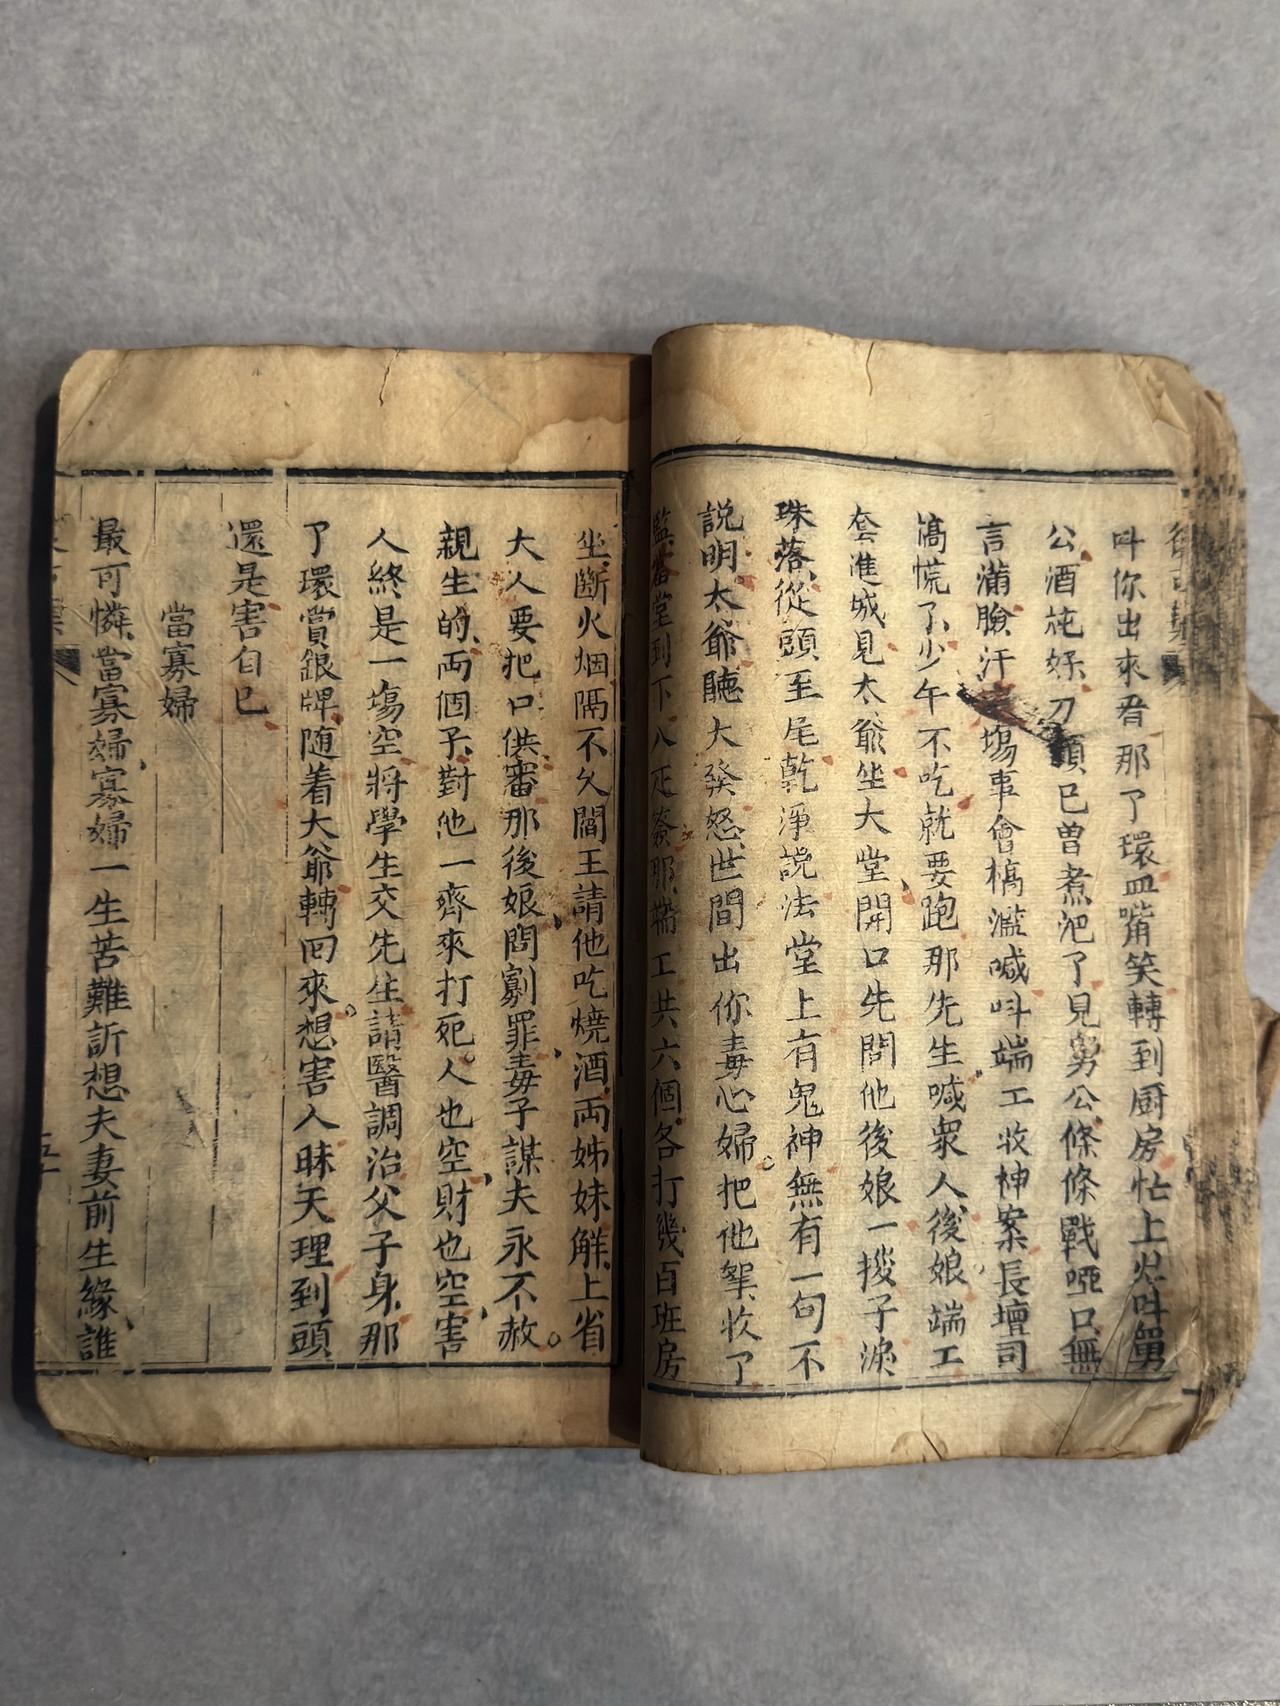 叫你出來看那了環血嘴笑轉到厨房忙上火叫舅
公酒純好刀頭已曾煮𣲩了見舅公條條戰啞口無
言滿臉汗塲事會槁濫喊呌端工收神案長壇司
槁慌了少午不吃就要跑那先生喊眾人後娘端工
套進城見太爺坐大堂開口先問他後娘一掇子淚
珠落從頭至尾乾淨説法堂上有鬼神無有一句不
説明太爺聽大發怒世間出你毒心婦把他拏收了
監審堂到下八疋簽那端工共六個各打幾百班房
坐斷火烟隔不久閻王請他吃燒酒兩姊妹解上省
大人要把口供審那後娘問剮罪毒子謀夫永不赦
親生的兩個子對他一齊來打死人也空財也空害
人終是一塲空將學生交先生請醫調治父子身那
了環賞銀牌随着大爺轉回來想害人昧天理到頭
還是害自已
當寡婦
最可憐當寡婦寡婦一生苦難訴想夫妻前生緣誰